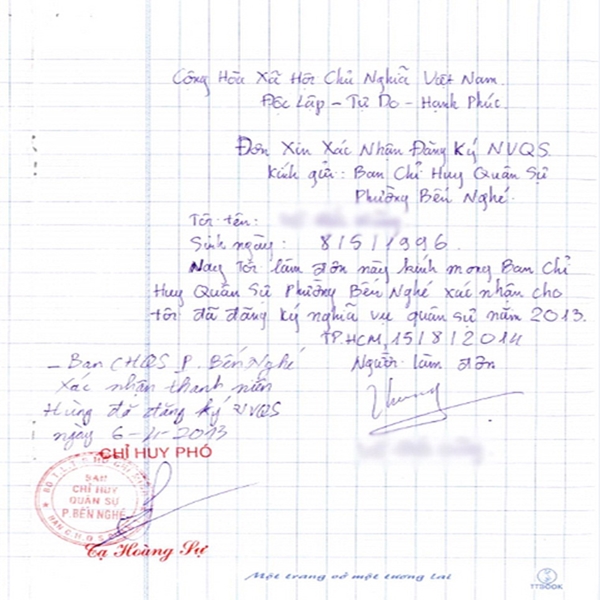 Công Hòa Xã Hội Chủ Nghĩa Việt Nam.
Độc Lập - Tự Do - Hạnh Phúc.
Đơn Xin Xác Nhận Đăng Ký NVQS.
Kính gửi: Ban Chỉ Huy Quân Sự
Phường Bến Nghé.
Tôi tên:
Sinh ngày: 8/5/1996.
Nay Tôi làm đơn này kính mong Ban Chỉ
Huy Quân Sự Phường Bến Nghé xác nhận cho
tôi đã đăng ký nghĩa vụ quân sự năm 2013.
TP.HCM, 15/8/2014
Người làm đơn
- Ban CHQS P. Bến Nghé
Xác nhận thanh niên
Hùng đã đăng ký NVQS
ngày 6-4-2013
CHỈ HUY PHÓ
BAN
CHỈ HUY
QUÂN SỰ
P.BẾN NGHÉ
Tạ Hoàng Sự
Một trang vở một tương lai
TTBOOK